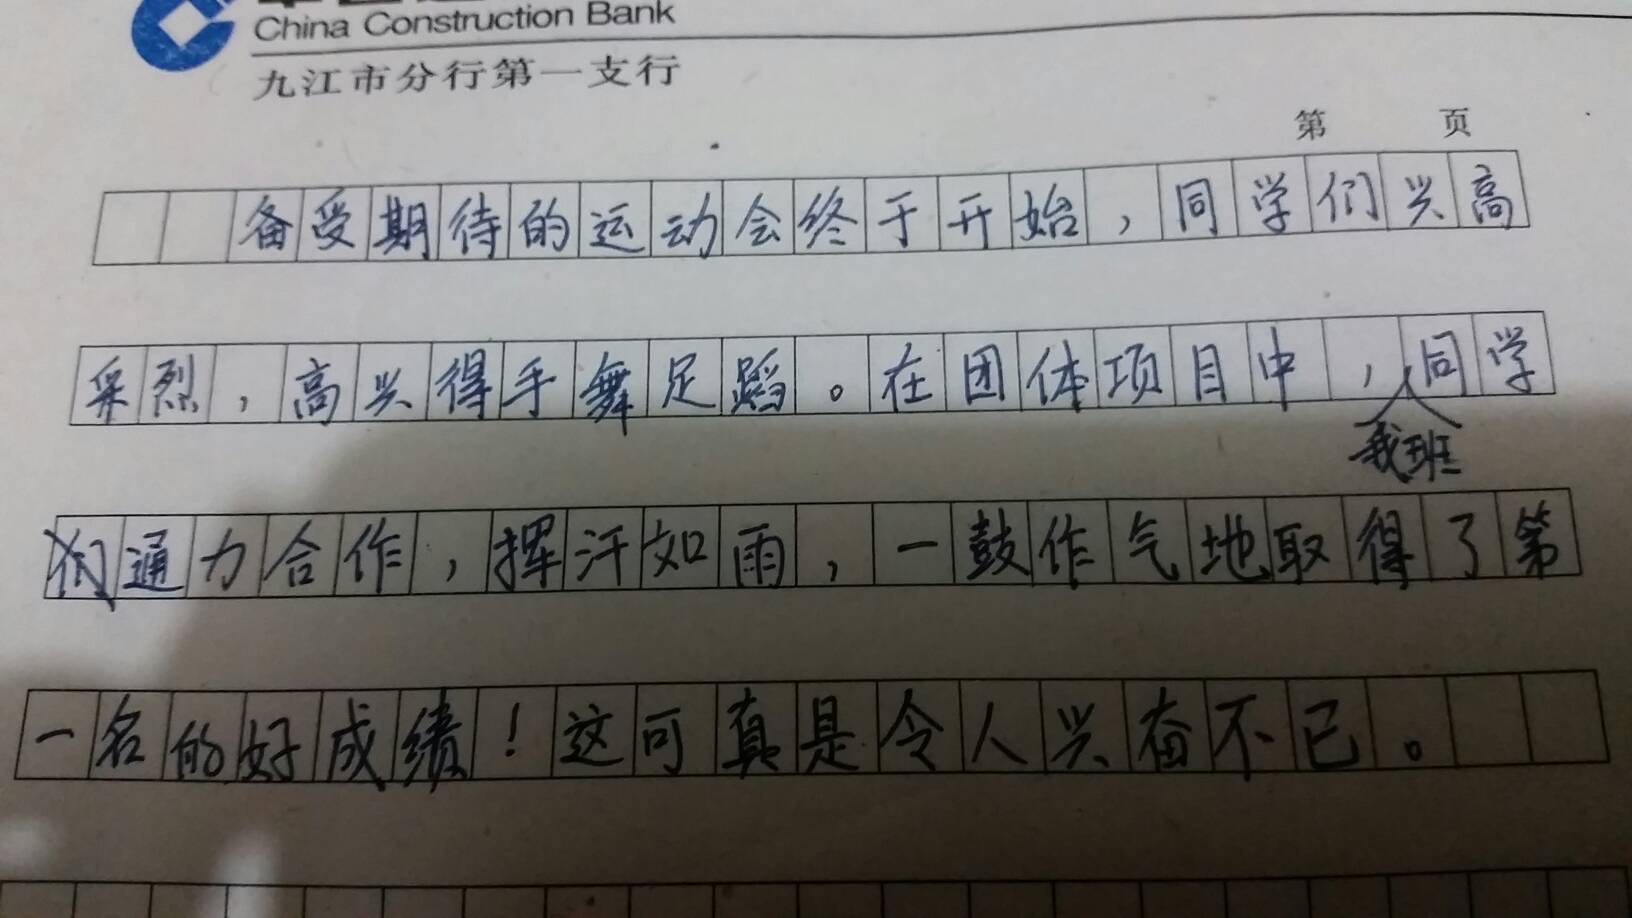 China Construction Bank
九江市分行第一支行
第 页
备受期待的运动会终于开始，同学们兴高
采烈，高兴得手舞足蹈。在团体项目中，我班同学
通力合作，挥汗如雨，一鼓作气地取得了第
一名的好成绩！这可真是令人兴奋不已。